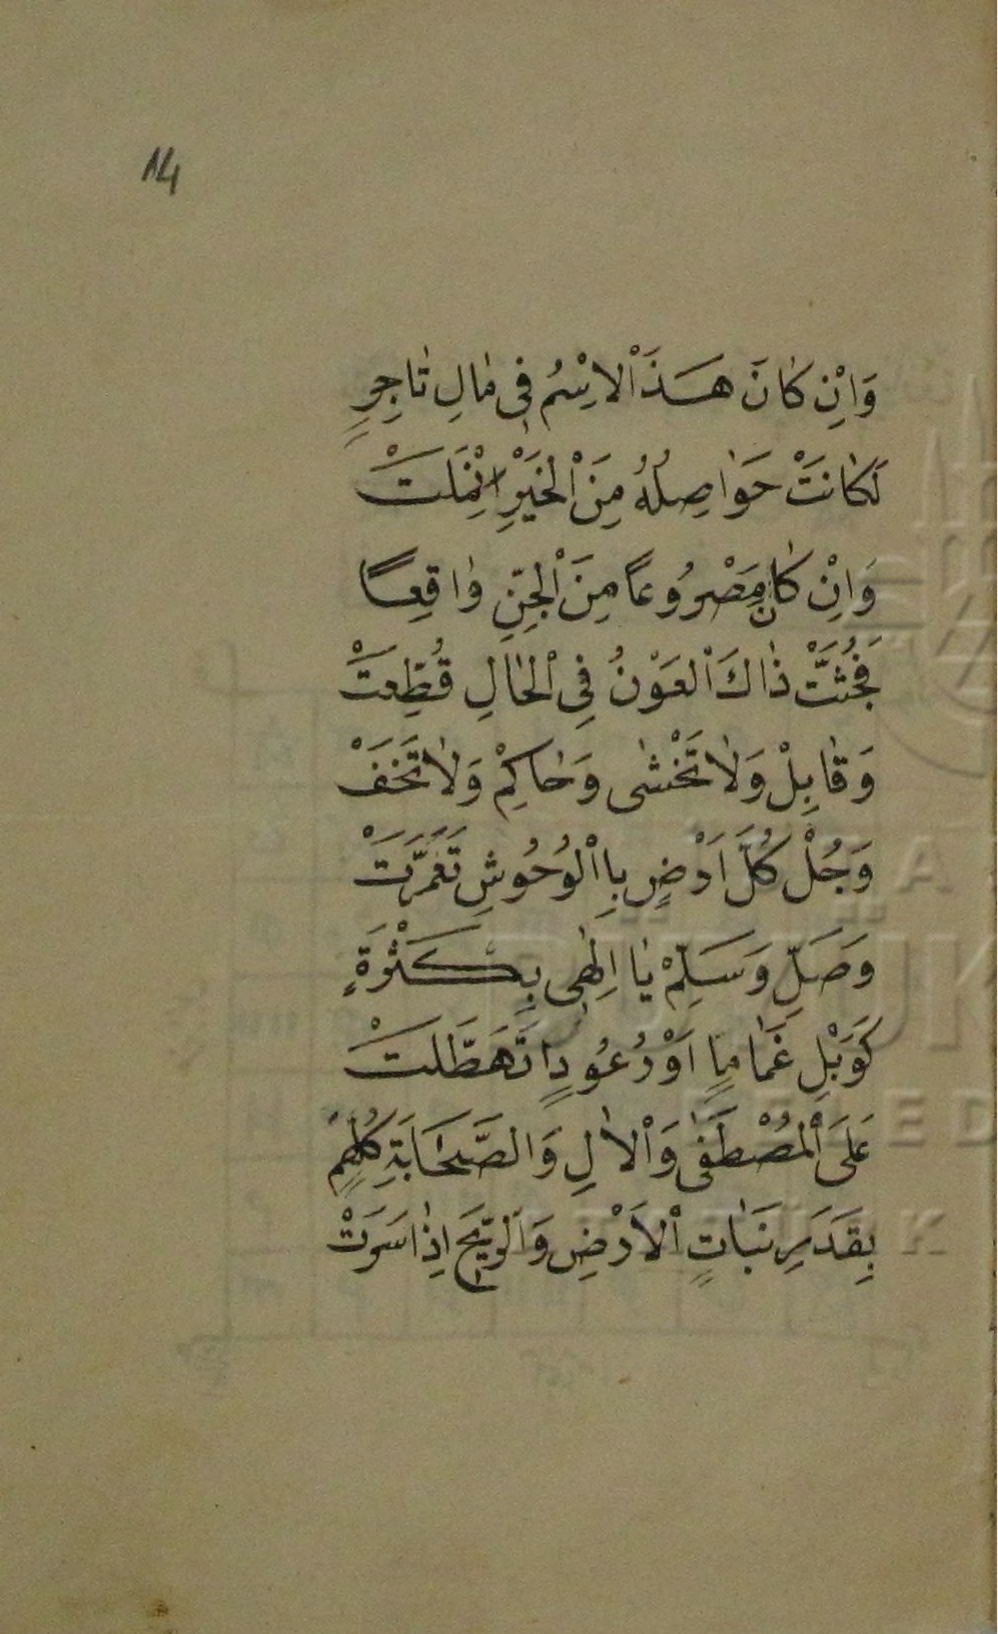 14
وَاِنْ كَانَ هَذَا الْاِسْمُ فِى مَالِ تَاجِرٍ
لَكَانَتْ حَوَاصِلُهُ مِنَ الْخَيْرِ انْمَلَتْ
وَاِنْ كَانَ مَصْرُوعًا مِنَ الْجِنِّ وَاقِعًا
فَجُثَّتْ ذَاكَ الْعَوْنُ فِى الْحَالِ قُطِّعَتْ
وَقَابِلْ وَلَا تَخْشٰى وَحَاكِمْ وَلَا تَخَفْ
وَجُلْ كُلَّ اَرْضٍ بِاالْوُحُوشِ تَعَمَّرَتْ
وَصَلِّ وَسَلِّمْ يَا اِلٰهِى بِكَثْرَةٍ
كَوَبْلِ غَمَامٍ اَوْ رُعُودٍ تَهَطَّلَتْ
عَلَى الْمُصْطَفٰى وَالْاٰلِ وَالصَّحَابَةِ كُلِّهِمْ
بِقَدَرِ نَبَاتِ الْاَرْضِ وَالرِّيحَ اِذَا سَرَتْ
BÜYÜK